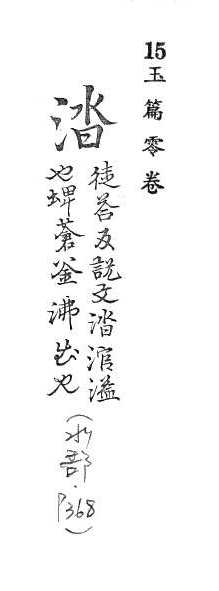 15玉篇零卷
涾
徒荅反說文涾涫溢
也埤蒼釜沸出也
(水部·P368)